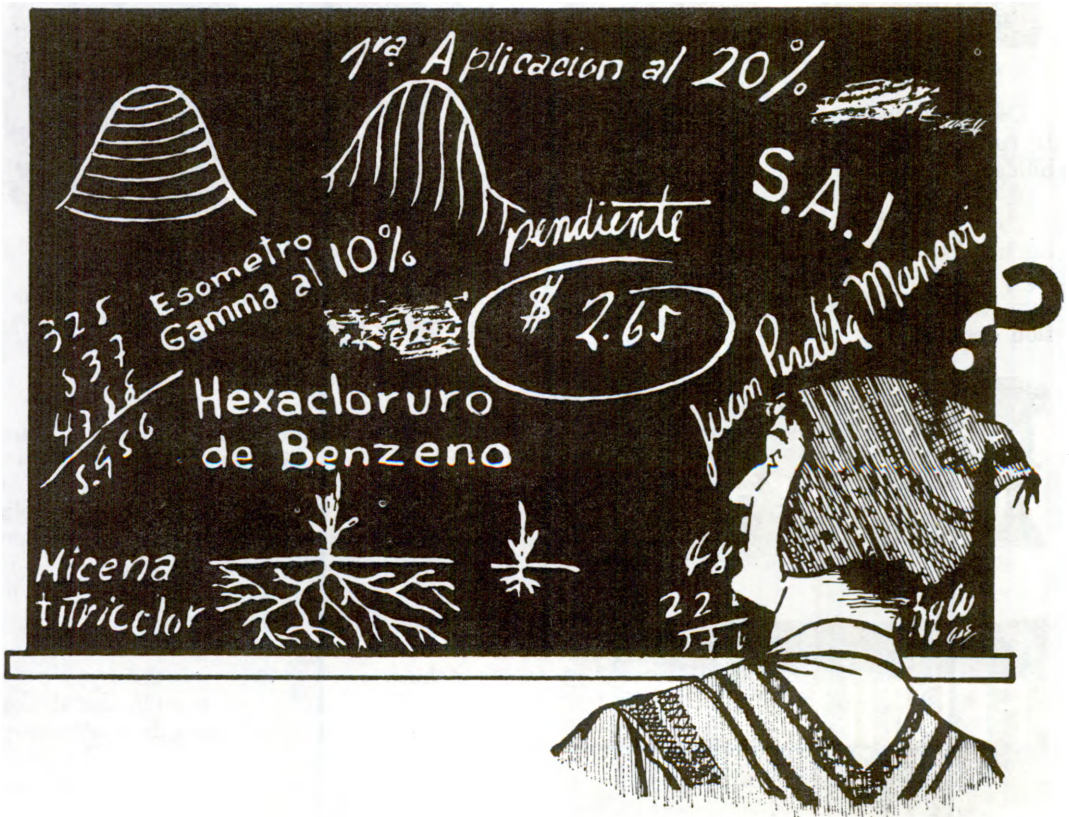 1ra Aplicacion al 20%
S.A.I
pendiente
Esometro
Gamma al 10%
$ 2.65
Juan Peralta Mamani
?
325
537
Hexacloruro
de Benzeno
Micena
titricclor
48
22